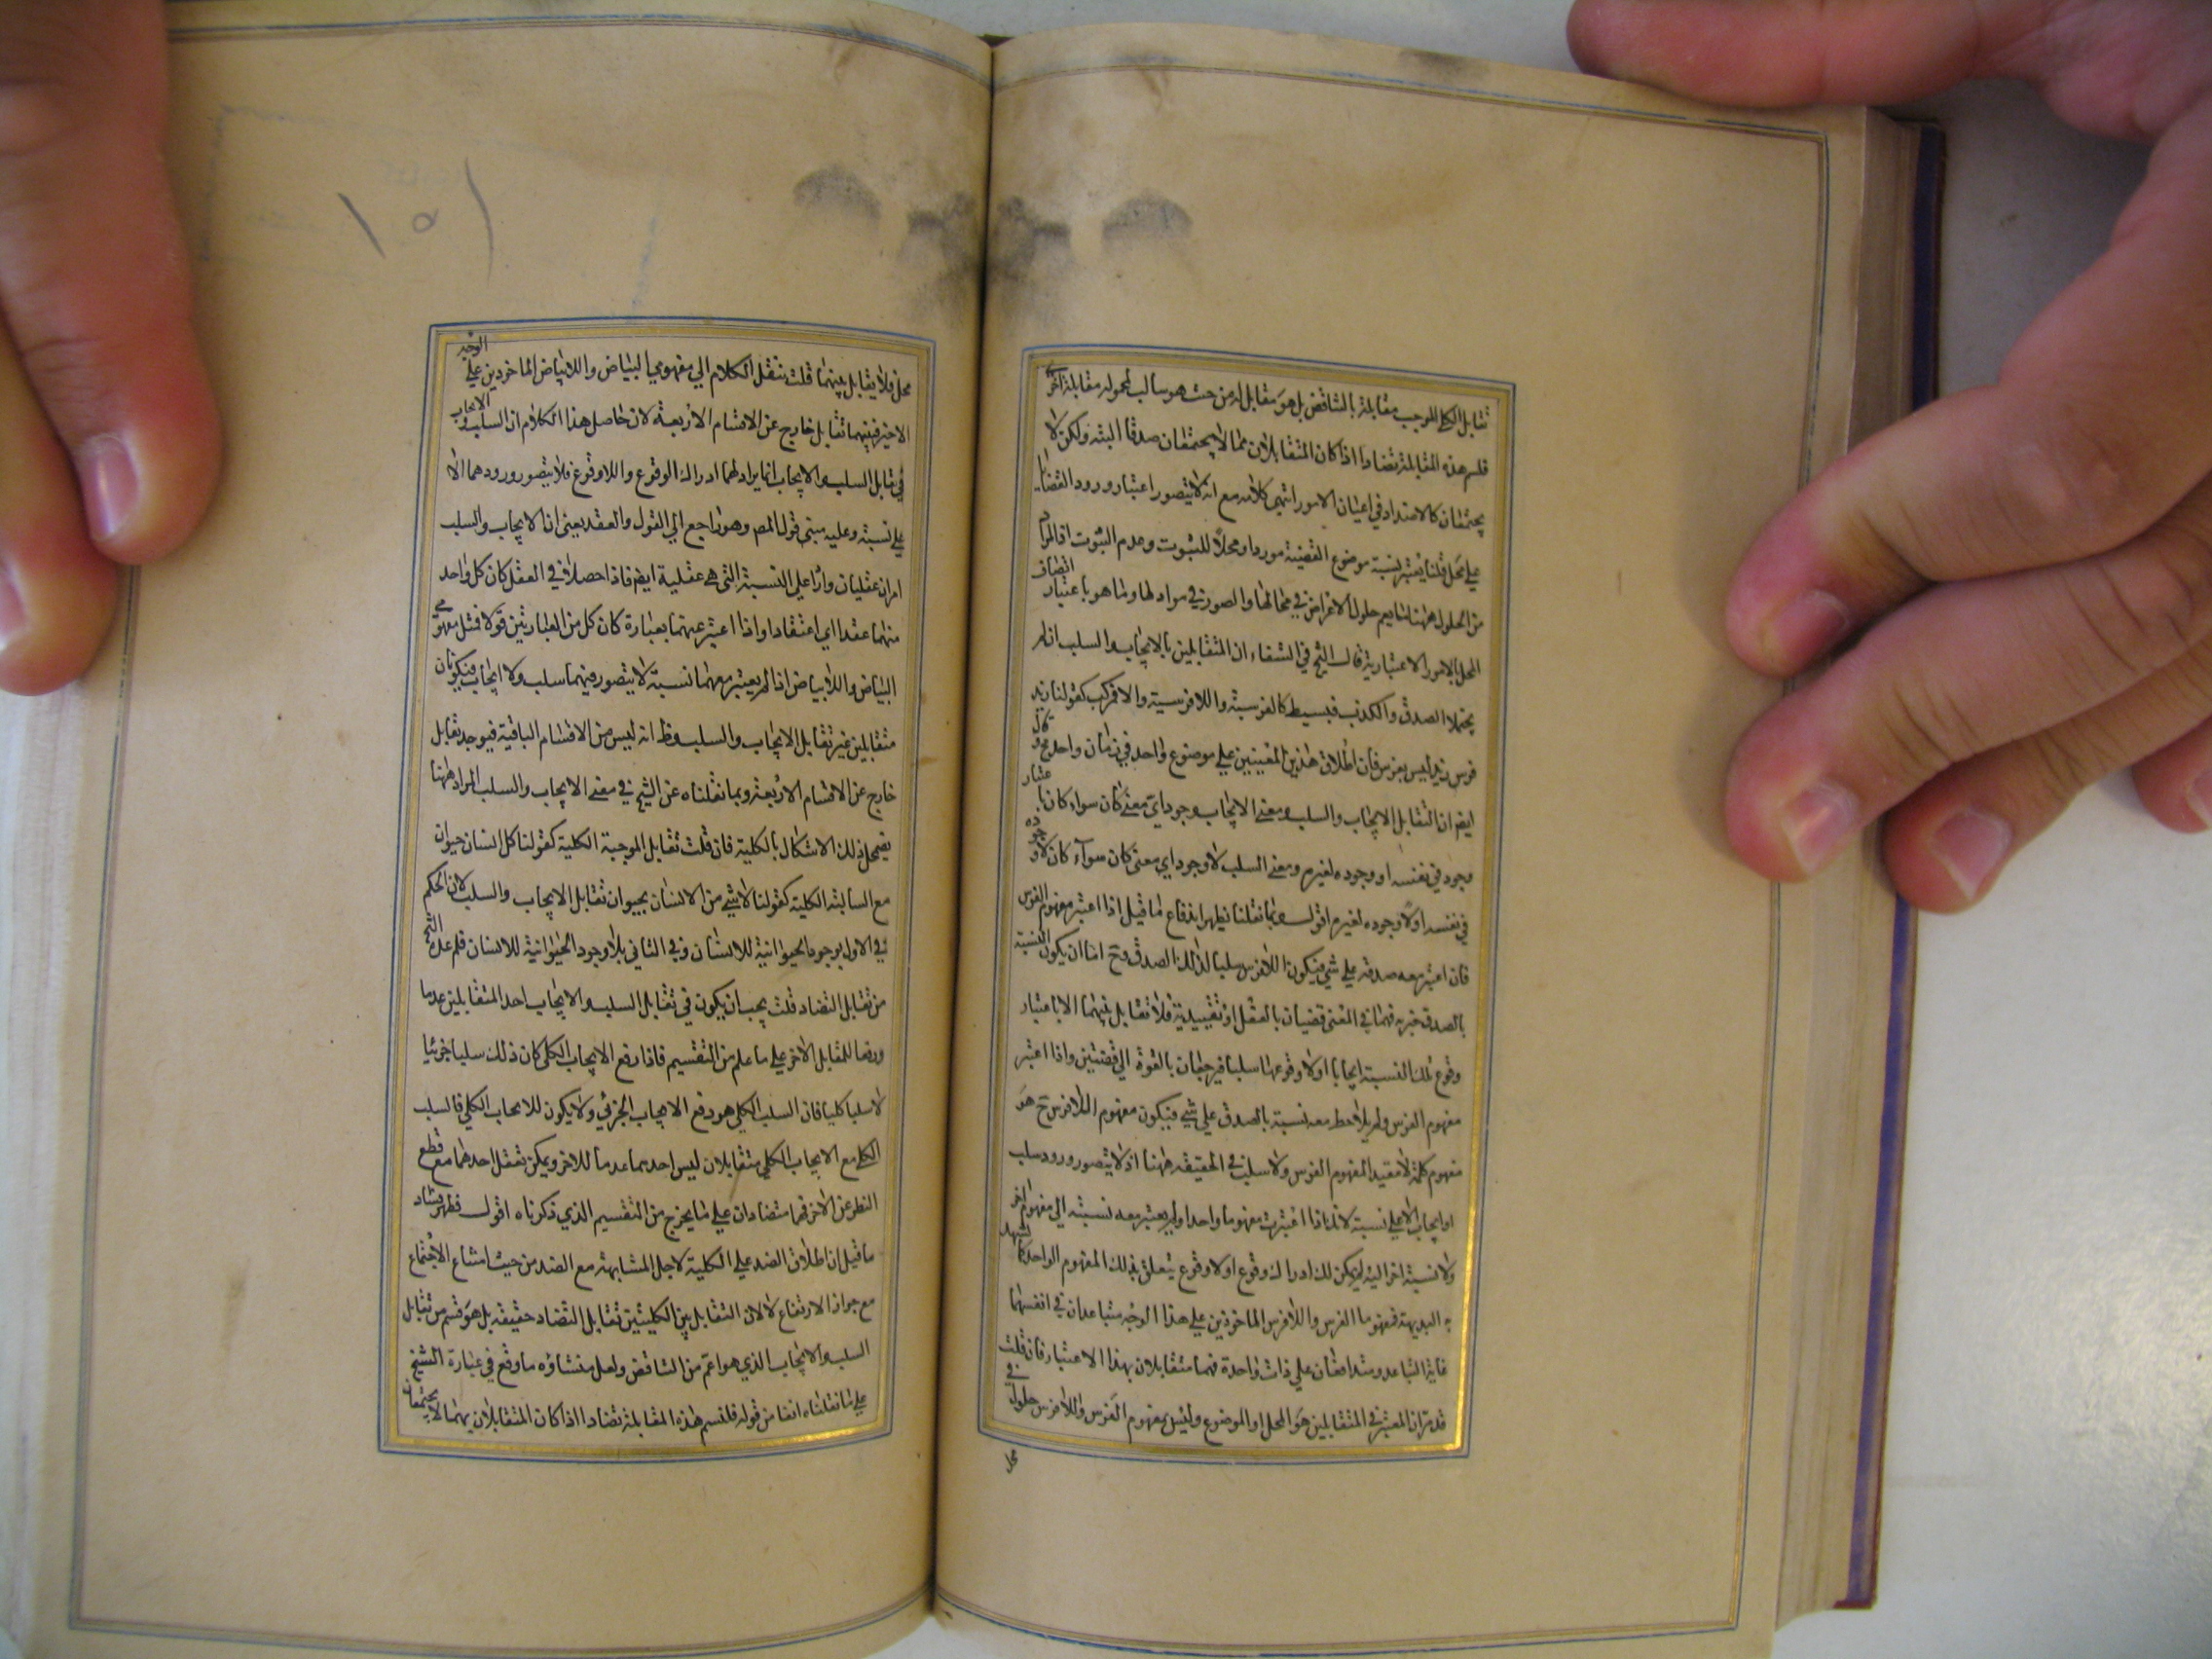 تقابل الكلي الموجب مقابلة بالتناقض بل هو مقابل له من حيث هو سالب لمحموله مقابلة اخرى
فلنسم هذه المقابلة تضادا اذا كان المتقابلان مما لا يجتمعان صدقا البتة ولكن لا
يجتمعان كالاضداد في اعيان الامور انتهى كلامه مع انه لا يتصور اعتبار ورود القضايا
على محل قلنا يعتبر نسبة موضوع القضية موردا ومحلا للثبوت وعدم الثبوت اذ المراد
من الحلول ههنا ما يعم حلول الاعراض في محالها والصور في موادها وما هو باعتبار اتصاف
المحل بالامور الاعتبارية قال الشيخ في الشفاء ان المتقابلين بالايجاب والسلب ان لم
يحتملا الصدق والكذب فبسيط كالفرسية واللافرسية والا فمركب كقولنا زيد
فرس زيد ليس بفرس فان اطلاق هذين المعنيين على موضوع واحد في زمان واحد مح وقال
ايضا ان التقابل الايجاب والسلب ومعنى الايجاب وجود اي معنى كان سواء كان باعتبار
وجود في نفسه او وجوده لغيره ومعنى السلب لا وجود اي معنى كان سواء كان لا وجوده
في نفسه او لا وجوده لغيره اقول وبما نقلنا يظهر اندفاع ما قيل اذا اعتبر مفهوم الفرس
فان اعتبر معه صدقه على شيء فيكون اللافرس سلبا لذلك الصدق وح اما ان يكون النسبة
بالصدق خبرية فهما في المعنى قضيتان بالعقل او تقييدية فلا تقابل بينهما الا باعتبار
وقوع تلك النسبة ايجابا او لا وقوعها سلبا فيرجعان بالقوة الى قضيتين واذا اعتبر
مفهوم الفرس ولم يلاحظ معه نسبة بالصدق على شيء فيكون مفهوم اللافرس ح هو
مفهوم كلمة لا مقيد المفهوم الفرس ولا سلب في الحقيقة ههنا اذ لا يتصور ورود سلب
او ايجاب الا على نسبة لانك اذا اعتبرت مفهوما واحدا ولم يعتبر معه نسبته الى مفهوم اخر
ولا نسبة اخر اليه لم يمكن لك ادراك وقوع او لا وقوع يتعلق بذلك المفهوم الواحد كما يشهد
به البديهة فمفهوما الفرس واللافرس الماخوذين على هذا الوجه متباعدان في انفسهما
غاية التباعد ومتدافعان على ذات واحدة فهما متقابلان بهذا الاعتبار فان قلت
قد مر ان المعتبر في المتقابلين هو المحل او الموضوع وليس لمفهوم الفرس واللافرس حلول في
محل فلا يقابل بينهما قلت ننقل الكلام الى مفهومي البياض واللابياض الماخوذين على الوجه
الاخير فبينهما تقابل خارج عن الاقسام الاربعة لان حاصل هذا الكلام ان السلب والايجاب
في تقابل السلب والايجاب انما يراد بهما ادراك الوقوع واللاوقوع فلا يتصور ورودهما الا
على نسبة وعليه مبنى قول المص وهو راجع الى القول والعقد يعنى ان الايجاب والسلب
امران عقليان واردان على النسبة التي هي عقلية ايضا فاذا حصلا في العقل كان كل واحد
منهما عقدا اي اعتقادا واذا اعتبر عنهما بعبارة كان كل من العبارتين قولا فمثل مفهومي
البياض واللابياض اذا لم يعتبر معهما نسبة لا يتصور فيهما سلب ولا ايجاب فيكونان
متقابلين غير تقابل الايجاب والسلب وظ انه ليس من الاقسام الباقية فيوجد تقابل
خارج عن الاقسام الاربعة وبما نقلناه عن الشيخ في معنى الايجاب والسلب المراد ههنا
يضمحل ذلك الاشكال بالكلية فان قلت تقابل الموجبة الكلية كقولنا كل انسان حيوان
مع السالبة الكلية كقولنا لا شيء من الانسان بحيوان تقابل الايجاب والسلب لان الحكم
في الاول بوجود الحيوانية للانسان وفي الثاني بلا وجود الحيوانية للانسان فلم عده الشيخ
من تقابل التضاد قلت يجب ان يكون في تقابل السلب والايجاب احد المتقابلين عدما
ورفعا للمقابل الاخر على ما علم من التقسيم فاذا رفع الايجاب الكلي كان ذلك سلبا جزئيا
لا سلبا كليا فان السلب الكلي هو رفع الايجاب الجزئي ولا يكون للايجاب الكلي فالسلب
الكلي مع الايجاب الكلي متقابلان ليس احدهما عدما للاخر ويمكن تعقل احدهما مع قطع
النظر عن الاخر فهما متضادان على ما يخرج من التقسيم الذي ذكرناه اقول فظهر فساد
ما قيل ان اطلاق الضد على الكلية لاجل المشابهة مع الضد من حيث امتناع الاجتماع
مع جواز الارتفاع لا لان التقابل بين الكليتين تقابل التضاد حقيقة بل هو قسم من تقابل
السلب والايجاب الذي هو اعم من التناقض ولعل منشاؤه ما وقع في عبارة الشيخ
على ما نقلناه انفا من قوله فلنسم هذه المقابلة تضادا اذا كان المتقابلان بهما لا يجتمعان
١٥١